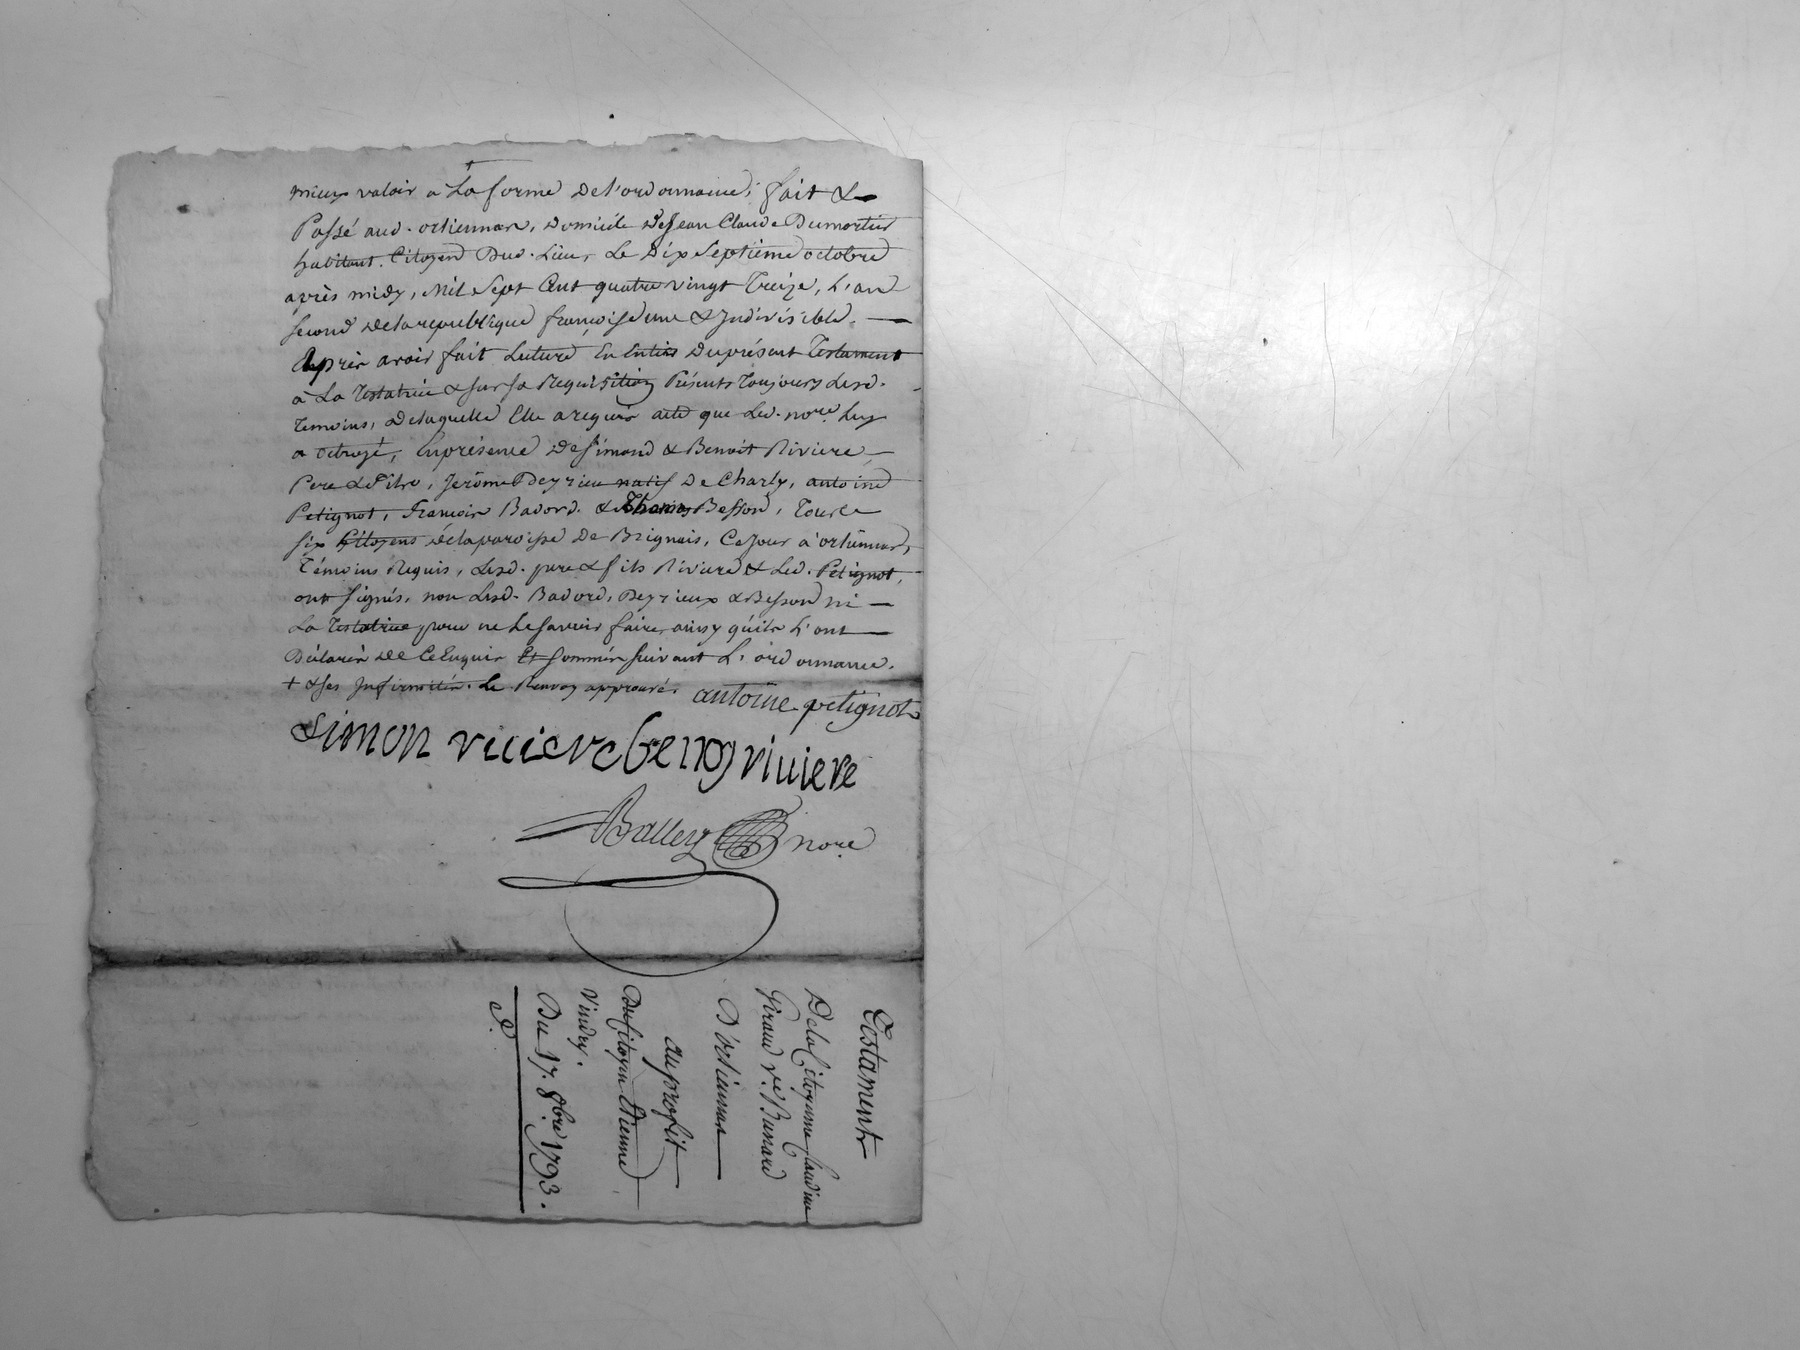 mieux valoir a La forme De l'ordonnance; fait &
Passé aud. ortiennan, Domicile De Jean Claude Dumortier
habitant. Citoyen Dud. Lieu, Le Dix Septieme octobre
après midy, Mil Sept Cent quatre vingt Treize, L'an
Second de la republique françoise une & Indivisible.
Après avoir fait Lecture En Entier Du présent Testament
à La Testatrice & sur sa Requisition Présents Toujours Lesd.
Temoins, De laquelle Elle a requis acte que Led. nore. luy
a octroyé, En présence De Simond & Benoit Riviere
Pere & Fils, Jerôme Deyrieu natif De Charly, antoine
Petignot, francois Badord. & Thomas Besson, Tous Les
six Citoyens de la paroisse De Brignais, Ce Jour a ortiennan,
Témoins Requis, Lesd. pere & fils Riviere & Led. Petignot,
ont signés, non Lesd. Badord, Deyrieux & Besson ni
La Testatrice pour ne Le savoir faire, ainsy qu'ils L'ont
Déclarés De Ce Enquis Et sommés suivant L'ordonnance.
+ & ses Infirmités. Le Renvoy approuvé. antoine petignot
Simon riviere benoy riviere
Ballery nore
Testament
De la Citoyenne Claudine
Giraud ve. Bunard
D'ortiennan
au profit
Du Citoyen Etienne
Vindry.
Du 17. 8bre 1793.